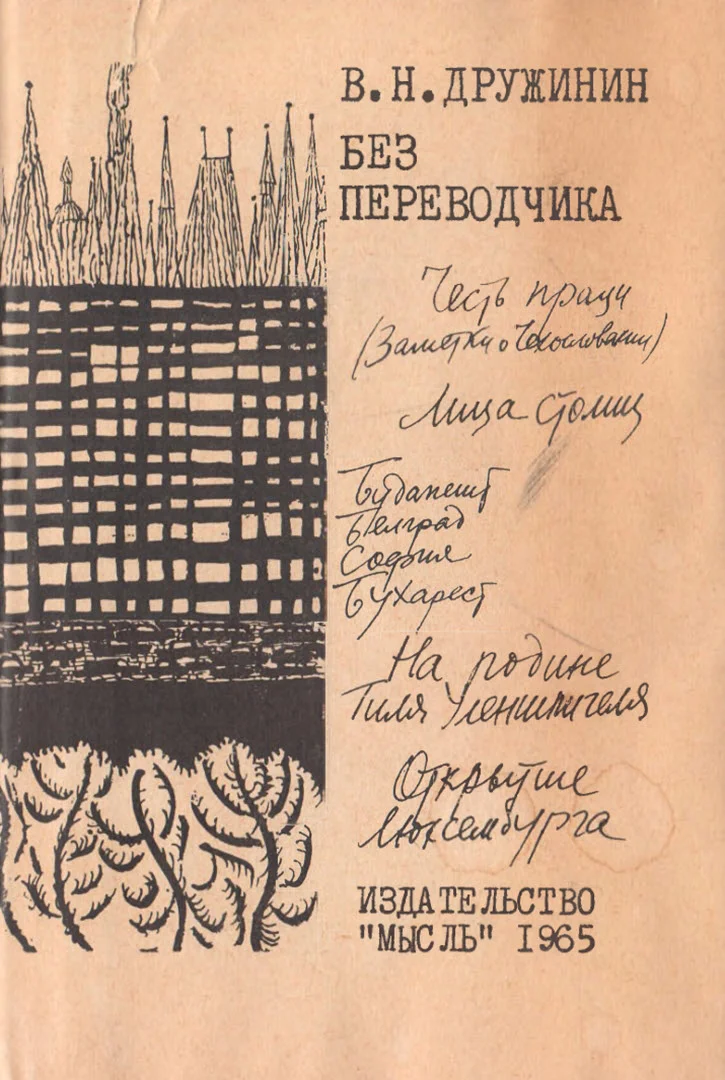 В. Н. ДРУЖИНИН
БЕЗ
ПЕРЕВОДЧИКА
Честь праци
(Заметки о Чехословакии)
Лица столиц
Будапешт
Белград
София
Бухарест
На родине
Тиля Уленшпигеля
Открытие
Люксембурга
ИЗДАТЕЛЬСТВО
"МЫСЛЬ" 1965